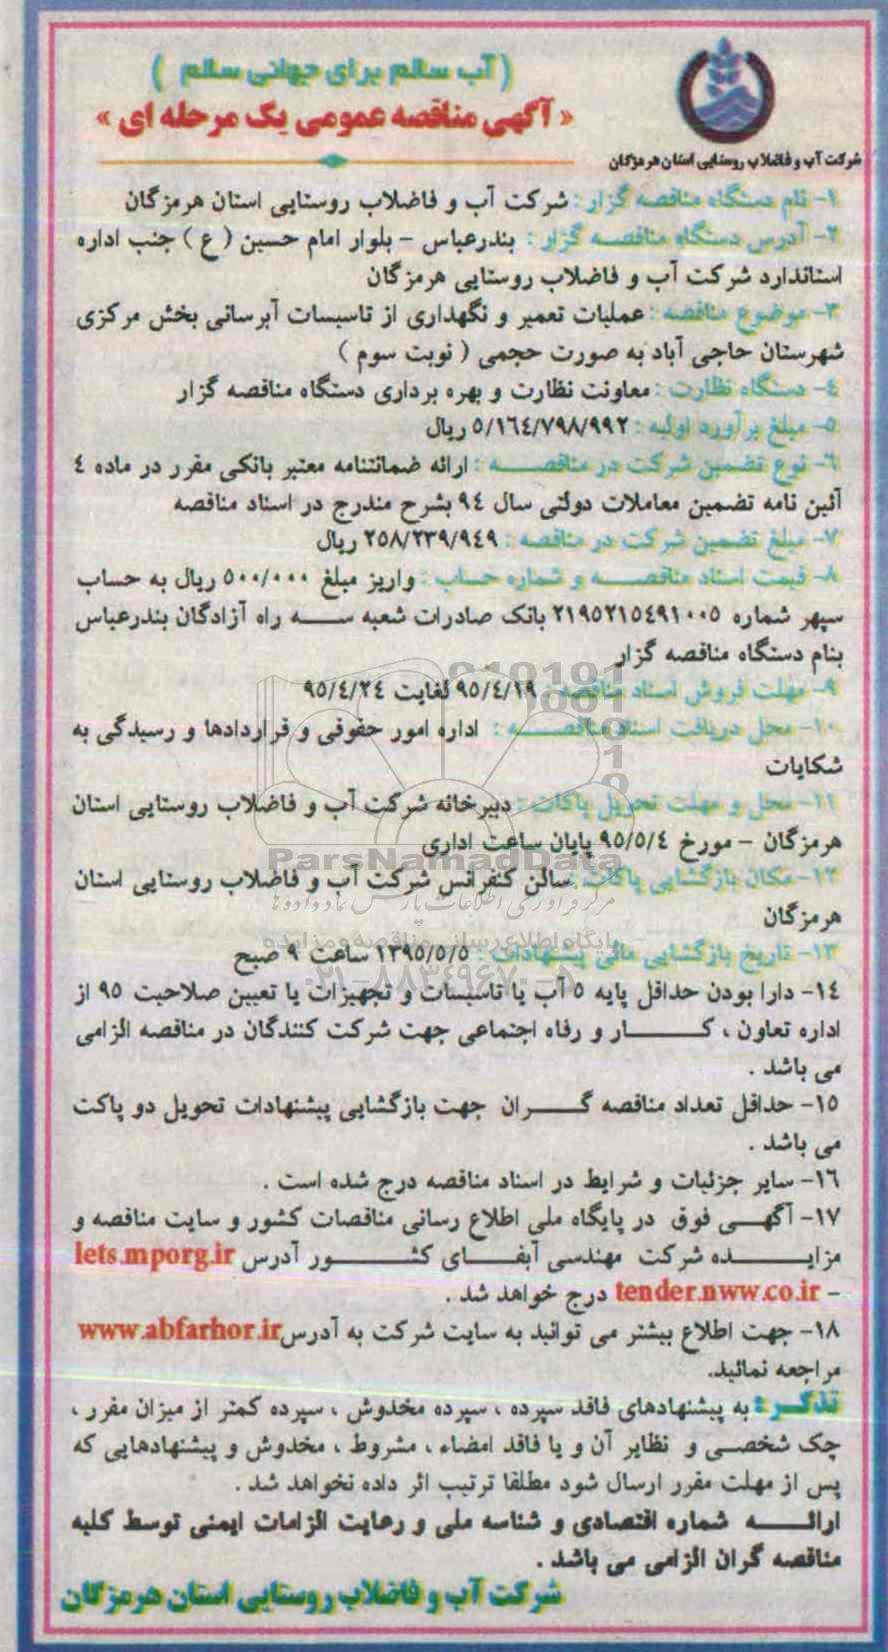 ( آب سالم برای جهانی سالم )
« آگهی مناقصه عمومی یک مرحله ای »
شرکت آب و فاضلاب روستایی استان هرمزگان
۱- نام دستگاه مناقصه گزار : شرکت آب و فاضلاب روستایی استان هرمزگان
۲- آدرس دستگاه مناقصه گزار : بندرعباس – بلوار امام حسین ( ع ) جنب اداره
استاندارد شرکت آب و فاضلاب روستایی هرمزگان
۳- موضوع مناقصه : عملیات تعمیر و نگهداری از تاسیسات آبرسانی بخش مرکزی
شهرستان حاجی آباد به صورت حجمی ( نوبت سوم )
۴- دستگاه نظارت : معاونت نظارت و بهره برداری دستگاه مناقصه گزار
۵- مبلغ برآورد اولیه : ۵/۱۶۴/۷۹۸/۹۹۲ ریال
۶- نوع تضمین شرکت در مناقصه : ارائه ضمانتنامه معتبر بانکی مقرر در ماده ۴
آئین نامه تضمین معاملات دولتی سال ۹۴ بشرح مندرج در اسناد مناقصه
۷- مبلغ تضمین شرکت در مناقصه : ۲۵۸/۲۳۹/۹۴۹ ریال
۸- قیمت اسناد مناقصه و شماره حساب : واریز مبلغ ۵۰۰/۰۰۰ ریال به حساب
سپهر شماره ۲۱۹۵۲۱۵۴۹۱۰۰۵ بانک صادرات شعبه سه راه آزادگان بندرعباس
بنام دستگاه مناقصه گزار
۹- مهلت فروش اسناد مناقصه : ۹۵/۴/۱۹ لغایت ۹۵/۴/۲۴
۱۰- محل دریافت اسناد مناقصه : اداره امور حقوقی و قراردادها و رسیدگی به
شکایات
۱۱- محل و مهلت تحویل پاکات : دبیرخانه شرکت آب و فاضلاب روستایی استان
هرمزگان – مورخ ۹۵/۵/۴ پایان ساعت اداری
ParsNamadData
۱۲- مکان بازگشایی پاکات : سالن کنفرانس شرکت آب و فاضلاب روستایی استان
هرمزگان
پایگاه اطلاع رسانی مناقصه و مزایده
۱۳- تاریخ بازگشایی مالی پیشنهادات : ۱۳۹۵/۵/۵ ساعت ۹ صبح
۰۲۱-۸۸۳۴۹۶۷۰-۵
۱۴- دارا بودن حداقل پایه ۵ آب یا تاسیسات و تجهیزات یا تعیین صلاحیت ۹۵ از
اداره تعاون ، کار و رفاه اجتماعی جهت شرکت کنندگان در مناقصه الزامی
می باشد .
۱۵- حداقل تعداد مناقصه گران جهت بازگشایی پیشنهادات تحویل دو پاکت
می باشد .
۱۶- سایر جزئیات و شرایط در اسناد مناقصه درج شده است .
۱۷- آگهی فوق در پایگاه ملی اطلاع رسانی مناقصات کشور و سایت مناقصه و
مزایده شرکت مهندسی آبفای کشور آدرس iets.mporg.ir
- tender.nww.co.ir درج خواهد شد .
۱۸- جهت اطلاع بیشتر می توانید به سایت شرکت به آدرس www.abfarhor.ir
مراجعه نمائید.
تذکر : به پیشنهادهای فاقد سپرده ، سپرده مخدوش ، سپرده کمتر از میزان مقرر ،
چک شخصی و نظایر آن و یا فاقد امضاء ، مشروط ، مخدوش و پیشنهادهایی که
پس از مهلت مقرر ارسال شود مطلقا ترتیب اثر داده نخواهد شد .
ارائه شماره اقتصادی و شناسه ملی و رعایت الزامات ایمنی توسط کلیه
مناقصه گران الزامی می باشد .
شرکت آب و فاضلاب روستایی استان هرمزگان